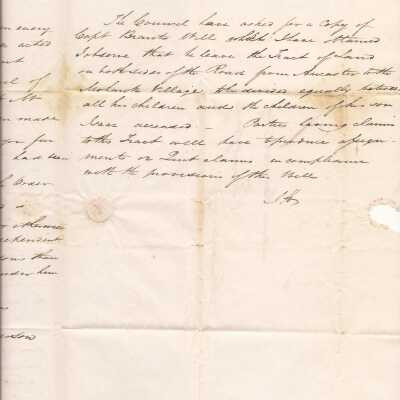 The Council have asked for a Copy of
Capt Brants Will which I have
I observe that he leaves the Tract of Land
on both sides of the Road from Ancaster to the
Mohawk Village to be divided equally between
all his children and the children of his son
Isaac deceased — Parties having claims
to this Tract will have to produce assign-
ments or Quit claims in compliance
with the provisions of the Will
every
asked
of
made
for
had been
Order
is
otherwise
than
son